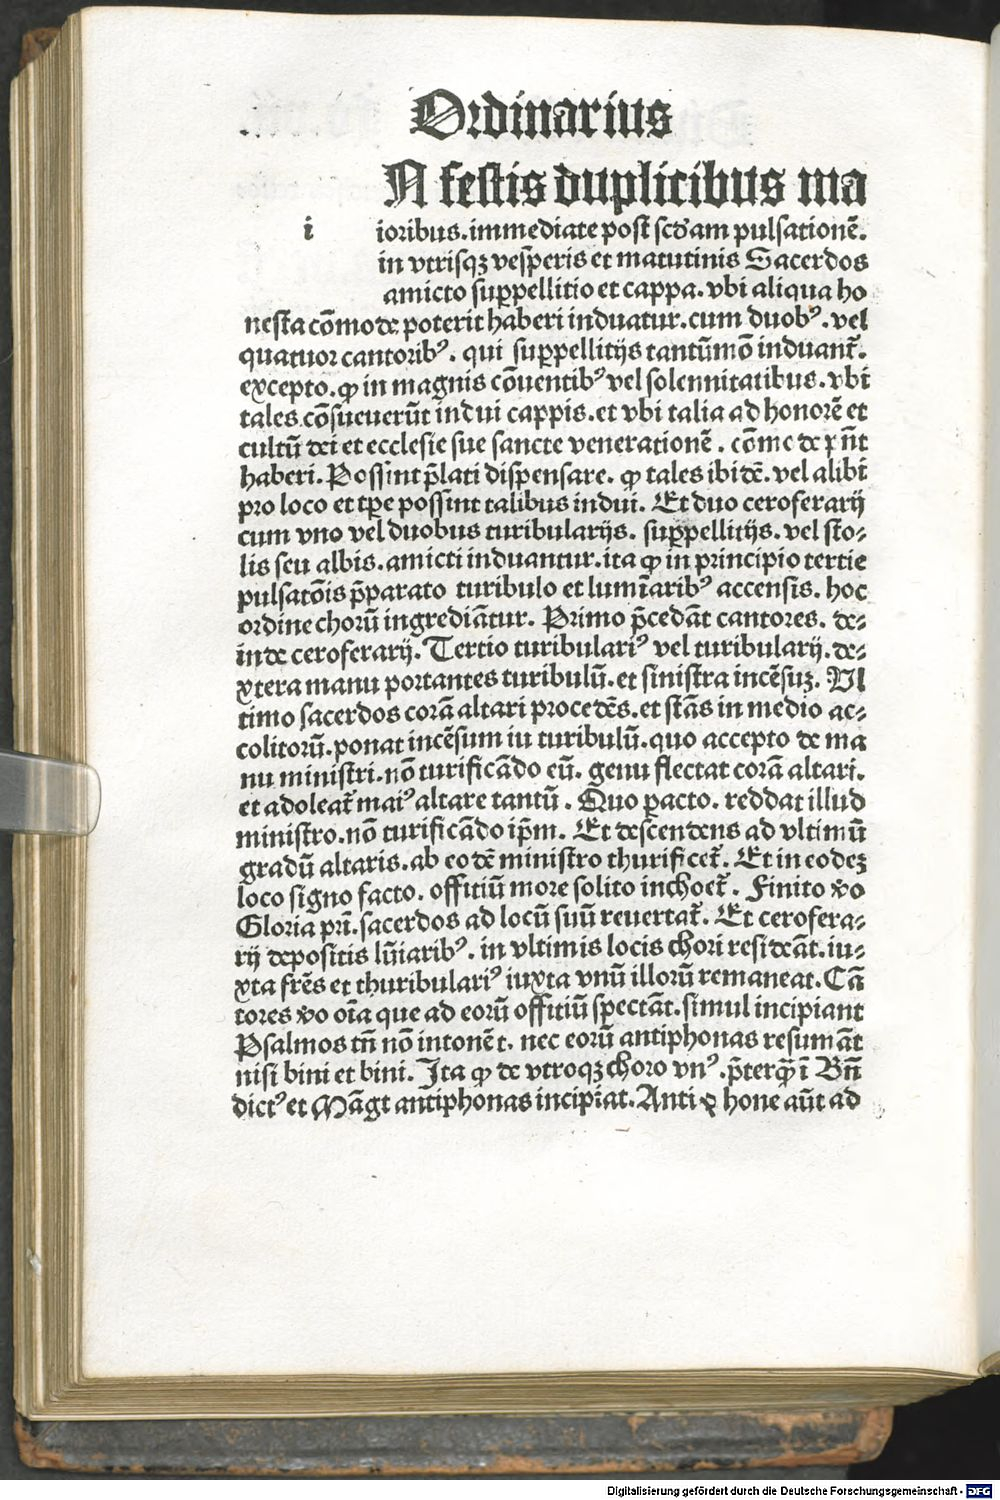 Ordinarius
N festis duplicibus ma
i ioribus.immediate post scďam pulsationē.
in vtrisqꝫ vesperis et matutinis Sacerdos
amicto suꝑpellitio et cappa.vbi aliqua ho
nesta cōmode poterit haberi induatur.cum duobꝰ.vel
quatuor cantoribꝰ. qui suꝑpellitijs tantūmō induant̄.
excepto.ꝙ in magnis cōuentibꝰ vel solennitatibus.vbi
tales cōsueuerūt indui cappis.et vbi talia ad honorē et
cultū dei et ecclesie sue sancte venerationē. cōmode pn̄t
haberi.Possint p̄lati dispensare. ꝙ tales ibidē.vel alibi
pro loco et tꝑe possint talibus indui. Et duo ceroferarij
cum vno vel duobus turibularijs. suꝑpellitijs.vel sto⸗
lis seu albis.amicti induantur.ita ꝙ in principio tertie
pulsatōis p̄parato turibulo et lumīaribꝰ accensis. hoc
ordine chorū ingrediātur. Primo p̄cedāt cantores. de⸗
inde ceroferarij. Tertio turibulariꝰ vel turibularij.de⸗
xtera manu portantes turibulū.et sinistra incēsuꝫ. Vl
timo sacerdos corā altari procedēs.et stās in medio ac⸗
colitorū.ponat incēsum iu turibulū.quo accepto de ma
nu ministri.nō turificādo eū. genu flectat corā altari.
et adoleat̄ maiꝰ altare tantū. Quo ꝑacto. reddat illud
ministro.nō turificādo ip̄m. Et descendens ad vltimū
gradū altaris.ab eodē ministro thurificet̄. Et in eodeꝫ
loco signo facto. offitiū more solito inchoet̄. Finito v̄o
Gloria pr̄i.sacerdos ad locū suū reuertat̄. Et cerofera⸗
rij depositis lūiaribꝰ. in vltimis locis chori resideāt.iu⸗
xta fr̄es et thuribulariꝰ iuxta vnū illorū remaneat.Cā
tores v̄o oīa que ad eorū offitiū spectāt.simul incipiant
Psalmos tn̄ nō intonēt. nec eorū antiphonas resumāt
nisi bini et bini. Ita ꝙ de vtroqꝫ choro vnꝰ.p̄terꝙ̄ ī Bn̄
dictꝰ et Māgt antiphonas incipiat.Antiphone aūt ad
Digitalisierung gefördert durch die Deutsche Forschungsgemeinschaft - DFG